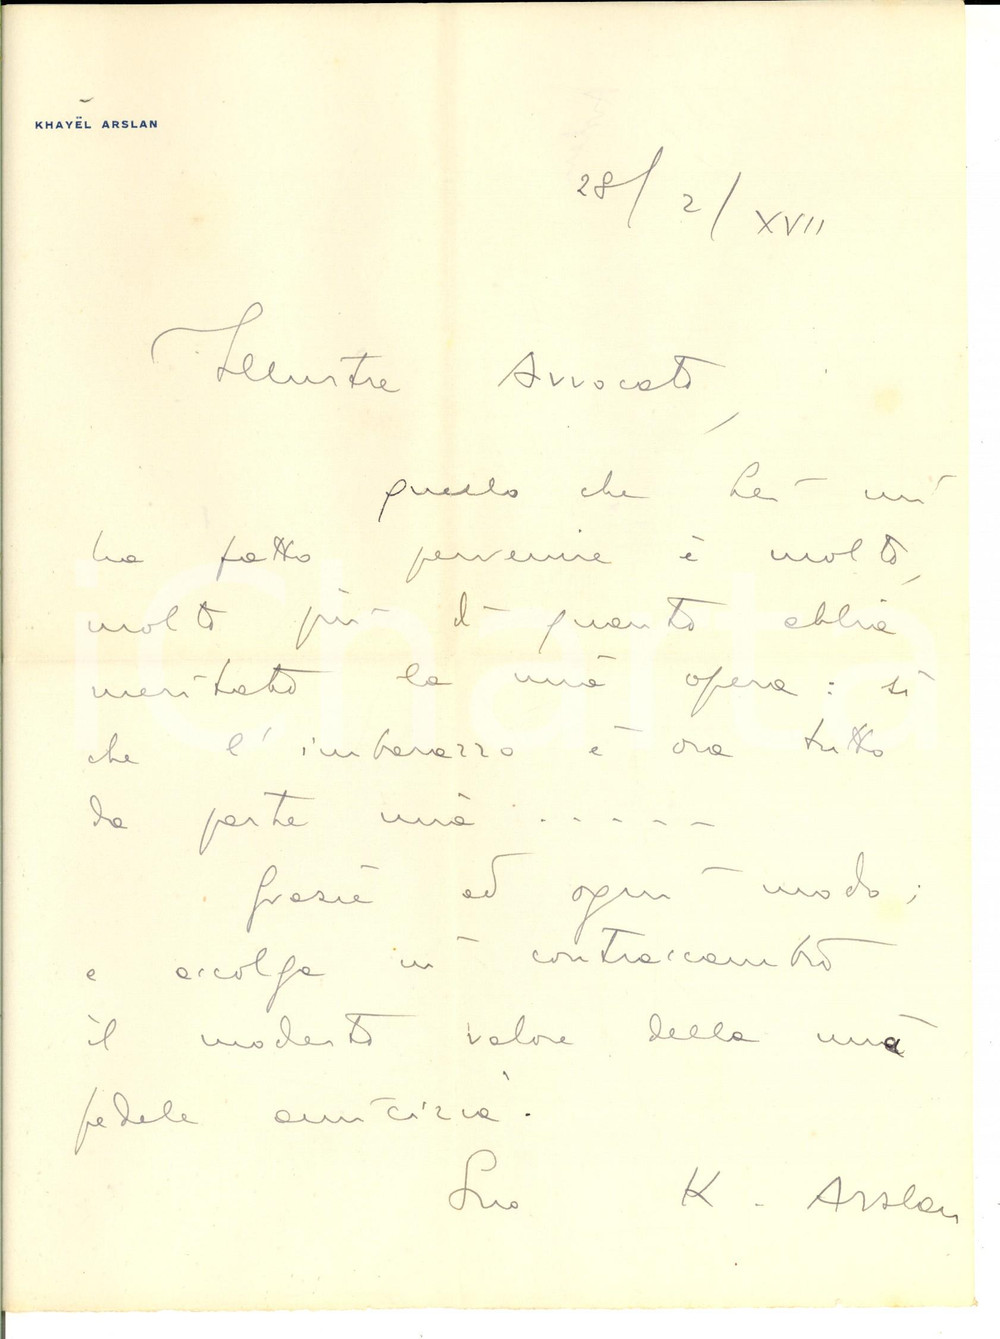 KHAYËL ARSLAN
28/2/XVII
Illustre Avvocato,
quello che Lei mi
ha fatto pervenire è molto,
molto più di quanto abbia
meritato la mia opera: sì
che l'imbarazzo è ora tutto
da parte mia .....
Grazie ad ogni modo;
e accolga in contraccambio
il modesto valore della mia
fedele amicizia.
Suo K. Arslan
iCharta